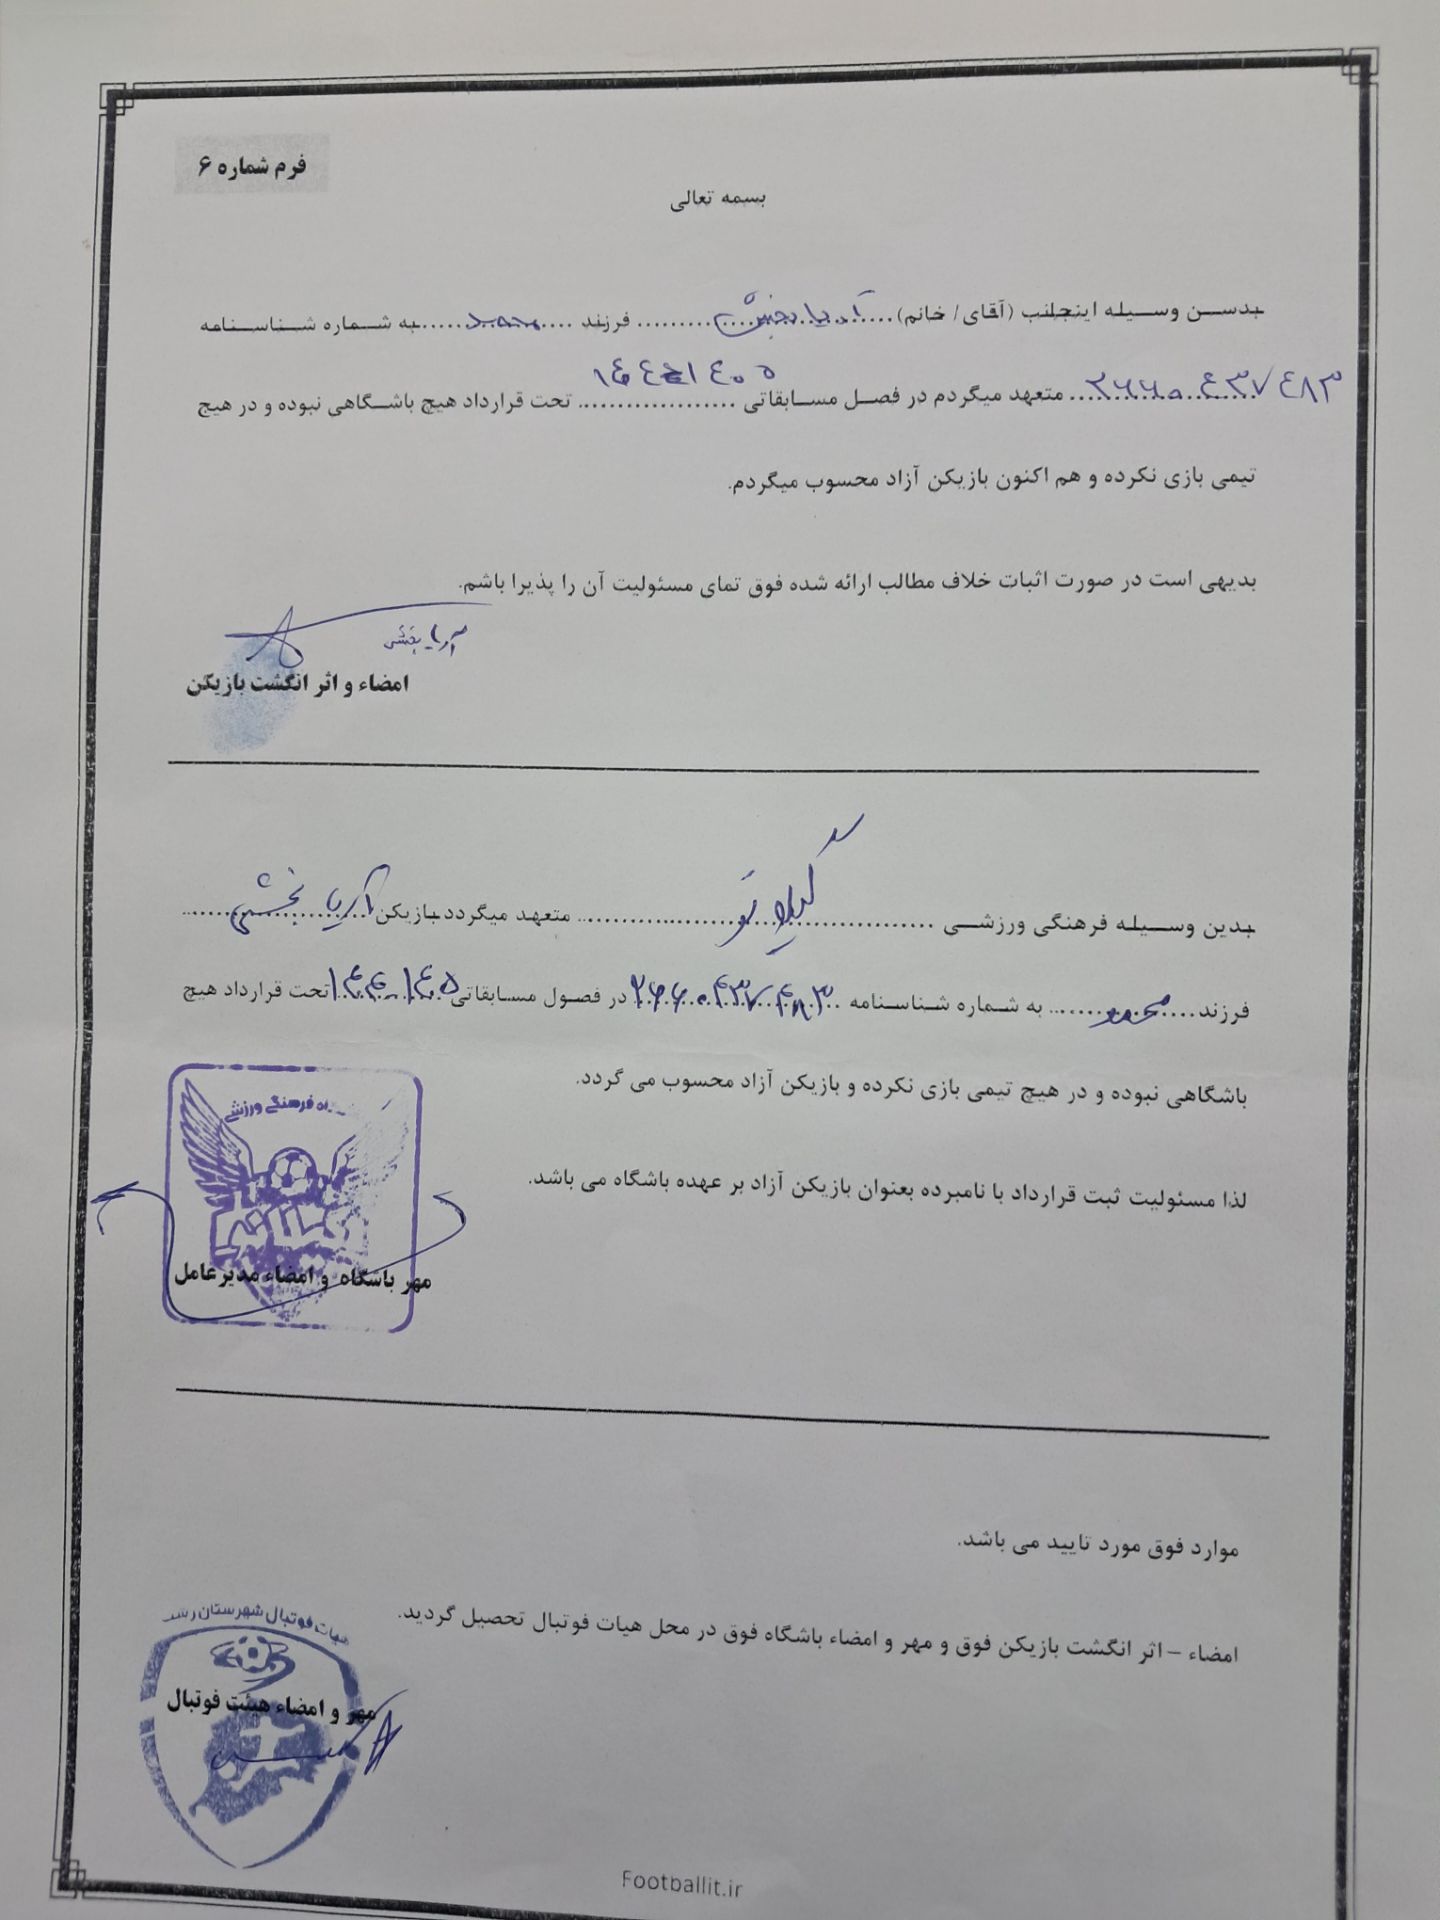 فرم شماره ۶
بسمه تعالی
بدسن وسیله اینجلنب (آقای/ خانم) آریا بخشی فرزند محمد به شماره شناسنامه
۲۶۶۰۴۳۷۴۸۳ متعهد میگردم در فصل مسابقاتی ۱۴۰۵ تحت قرارداد هیچ باشگاهی نبوده و در هیچ
تیمی بازی نکرده و هم اکنون بازیکن آزاد محسوب میگردم.
بدیهی است در صورت اثبات خلاف مطالب ارائه شده فوق تمای مسئولیت آن را پذیرا باشم.
آریا بخشی
امضاء و اثر انگشت بازیکن
بدین وسیله فرهنگی ورزشی متعهد میگردد بازیکن آریا بخشی
فرزند به شماره شناسنامه ۲۶۶۰۴۳۷۴۸۳ در فصول مسابقاتی تحت قرارداد هیچ
باشگاهی نبوده و در هیچ تیمی بازی نکرده و بازیکن آزاد محسوب می گردد.
لذا مسئولیت ثبت قرارداد با نامبرده بعنوان بازیکن آزاد بر عهده باشگاه می باشد.
فرهنگی ورزشی
مهر باشگاه و امضاء مدیرعامل
موارد فوق مورد تایید می باشد.
امضاء – اثر انگشت بازیکن فوق و مهر و امضاء باشگاه فوق در محل هیات فوتبال تحصیل گردید.
هیات فوتبال شهرستان رشت
مهر و امضاء هیئت فوتبال
Footballit.ir